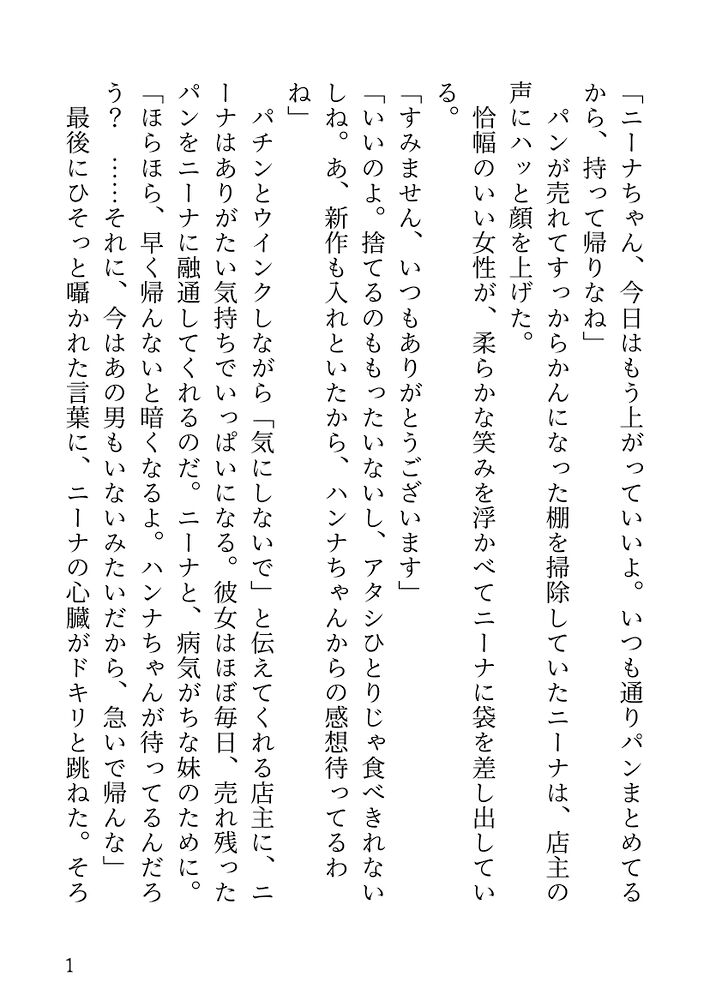 「ニーナちゃん、今日はもう上がっていいよ。いつも通りパンまとめてる
から、持って帰りなね」
パンが売れてすっからかんになった棚を掃除していたニーナは、店主の
声にハッと顔を上げた。
恰幅のいい女性が、柔らかな笑みを浮かべてニーナに袋を差し出してい
る。
「すみません、いつもありがとうございます」
「いいのよ。捨てるのももったいないし、アタシひとりじゃ食べきれない
しね。あ、新作も入れといたから、ハンナちゃんからの感想待ってるわ
ね」
パチンとウインクしながら「気にしないで」と伝えてくれる店主に、ニ
ーナはありがたい気持ちでいっぱいになる。彼女はほぼ毎日、売れ残った
パンをニーナに融通してくれるのだ。ニーナと、病気がちな妹のために。
「ほらほら、早く帰んないと暗くなるよ。ハンナちゃんが待ってるんだろ
う？　……それに、今はあの男もいないみたいだから、急いで帰んな」
最後にひそっと囁かれた言葉に、ニーナの心臓がドキリと跳ねた。そろ
1